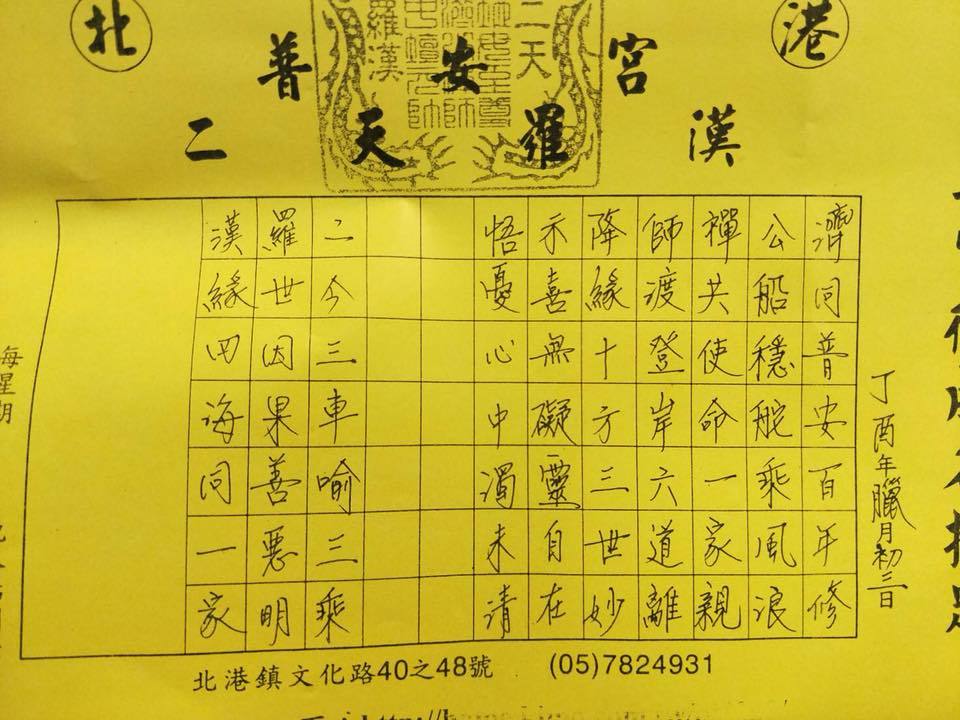 北港
普安宮
二天羅漢
二天
濟公禪師
中壇元帥
羅漢
丁酉年臘月初三日
濟同普安百年修
公船穩舵乘風浪
禪共使命一家親
師渡登岸六道離
降緣十方三世妙
示喜無礙靈自在
悟憂心中濁未清
二今三車喻三乘
羅世因果善惡明
漢緣四海同一家
每星期
北港鎮文化路40之48號 (05)7824931